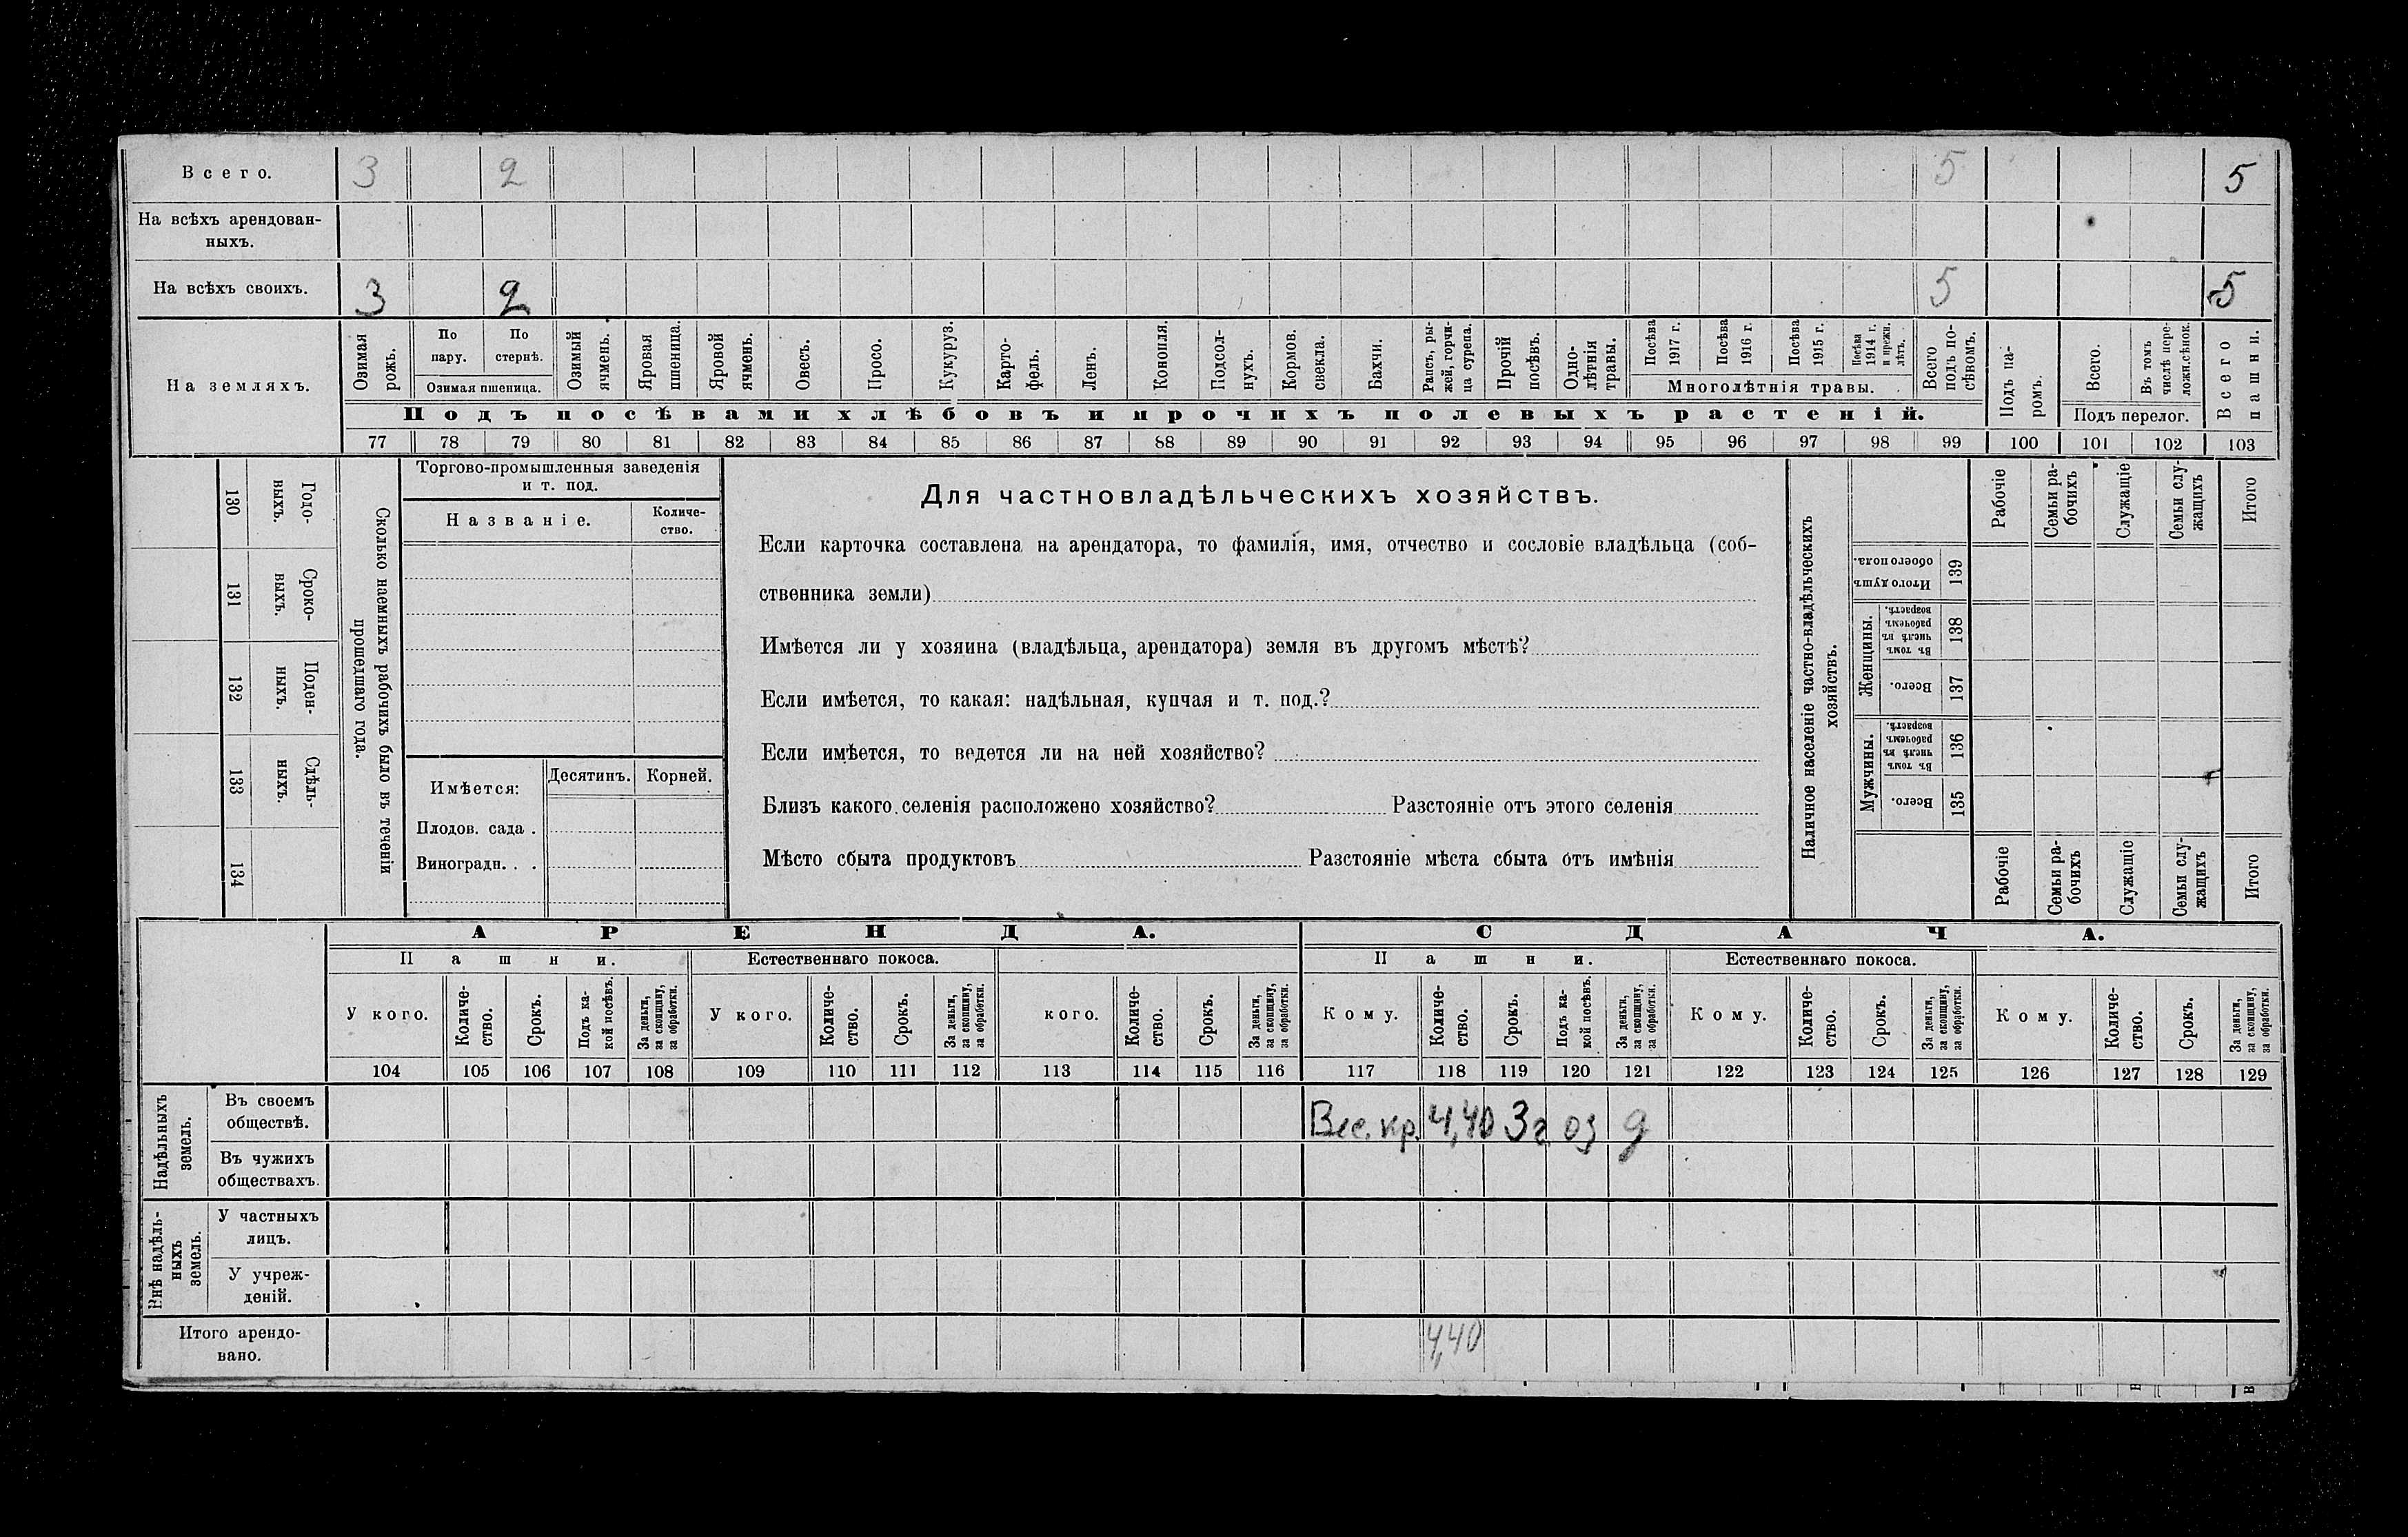 Всего. 3 2 5 5
На всѣхъ арендован-
ныхъ.
На всѣхъ своихъ. 3 2 5 5
На земляхъ.
Озимая рожь.
По пару.
По стернѣ.
Озимая пшеница.
Озимый ячмень.
Яровая пшеница.
Яровой ячмень.
Овесъ.
Просо.
Кукуруз.
Карто-
фель.
Ленъ.
Конопля.
Подсол-
нухъ.
Кормов. свекла.
Бахчи.
Рапсъ, ры-
жей, горчи-
ца сурепа.
Прочій посѣвъ.
Одно-
лѣтнія травы.
Посѣва 1917 г.
Посѣва 1916 г.
Посѣва 1915 г.
Посѣва 1914 г. и прежн. лѣтъ.
Многолѣтнія травы.
Всего подъ по-
сѣвомъ.
Подъ посѣвами хлѣбовъ и прочихъ полевыхъ растеній.
Подъ па-
ромъ.
Всего.
Въ томъ числѣ пере-
ложн.сѣнок.
Подъ перелог.
Всего пашни.
77 78 79 80 81 82 83 84 85 86 87 88 89 90 91 92 93 94 95 96 97 98 99 100 101 102 103
130 Годо-
выхъ.
131 Сроко-
выхъ.
132 Поден-
ныхъ.
133 Сдѣль-
ныхъ.
134
Сколько наемныхъ рабочихъ было въ теченіи
прошедшаго года.
Торгово-промышленныя заведенія
и т. под.
Названіе.
Количе-
ство.
Имѣется:
Десятинъ. Корней.
Плодов. сада .
Виноградн. . .
Для частновладѣльческихъ хозяйствъ.
Если карточка составлена на арендатора, то фамилія, имя, отчество и сословіе владѣльца (соб-
ственника земли)
Имѣется ли у хозяина (владѣльца, арендатора) земля въ другомъ мѣстѣ?
Если имѣется, то какая: надѣльная, купчая и т. под.?
Если имѣется, то ведется ли на ней хозяйство?
Близъ какого селенія расположено хозяйство? Разстояніе отъ этого селенія
Мѣсто сбыта продуктовъ Разстояніе мѣста сбыта отъ имѣнія
Наличное населеніе частно-владѣльческихъ
хозяйствъ.
Рабочіе
Семьи ра-
бочихъ
Служащіе
Семьи слу-
жащихъ
Итого
Итого душъ обоего пола. 139
Женщины.
Въ томъ числѣ въ рабочемъ возрастѣ. 138
Всего. 137
Мужчины.
Въ томъ числѣ въ рабочемъ возрастѣ. 136
Всего. 135
Рабочіе
Семьи ра-
бочихъ
Служащіе
Семьи слу-
жащихъ
Итого
АРЕНДА. СДАЧА.
Пашни. Естественнаго покоса. Пашни. Естественнаго покоса.
У кого.
Количе-
ство.
Срокъ.
Подъ ка-
кой посѣвъ.
За деньги,
за скопщину,
за обработки.
У кого.
Количе-
ство.
Срокъ.
За деньги,
за скопщину,
за обработки.
кого.
Количе-
ство.
Срокъ.
За деньги,
за скопщину,
за обработки.
Кому.
Количе-
ство.
Срокъ.
Подъ ка-
кой посѣвъ.
За деньги,
за скопщину,
за обработки.
Кому.
Количе-
ство.
Срокъ.
За деньги,
за скопщину,
за обработки.
Кому.
Количе-
ство.
Срокъ.
За деньги,
за скопщину,
за обработки.
104 105 106 107 108 109 110 111 112 113 114 115 116 117 118 119 120 121 122 123 124 125 126 127 128 129
Надѣльныхъ
земель.
Въ своемъ
обществѣ.
Вес. кр. 4,40 3г оз д
Въ чужихъ
обществахъ.
Внѣ надѣль-
ныхъ
земель.
У частныхъ
лицъ.
У учреж-
деній.
Итого арендо-
вано.
4,40